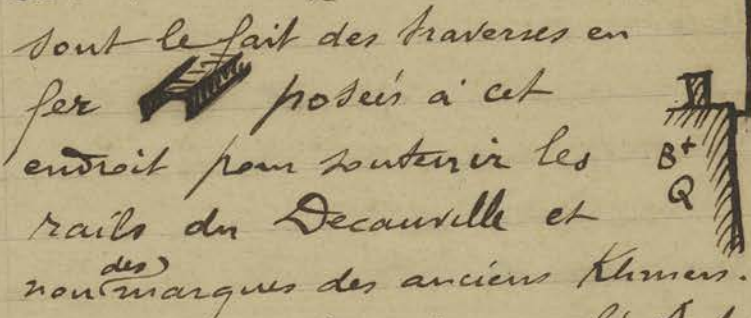 sont le fait des traverses en
fer posées à cet
endroit pour soutenir les
B+
Q
rails du Decauville et
non des marques des anciens Khmers.